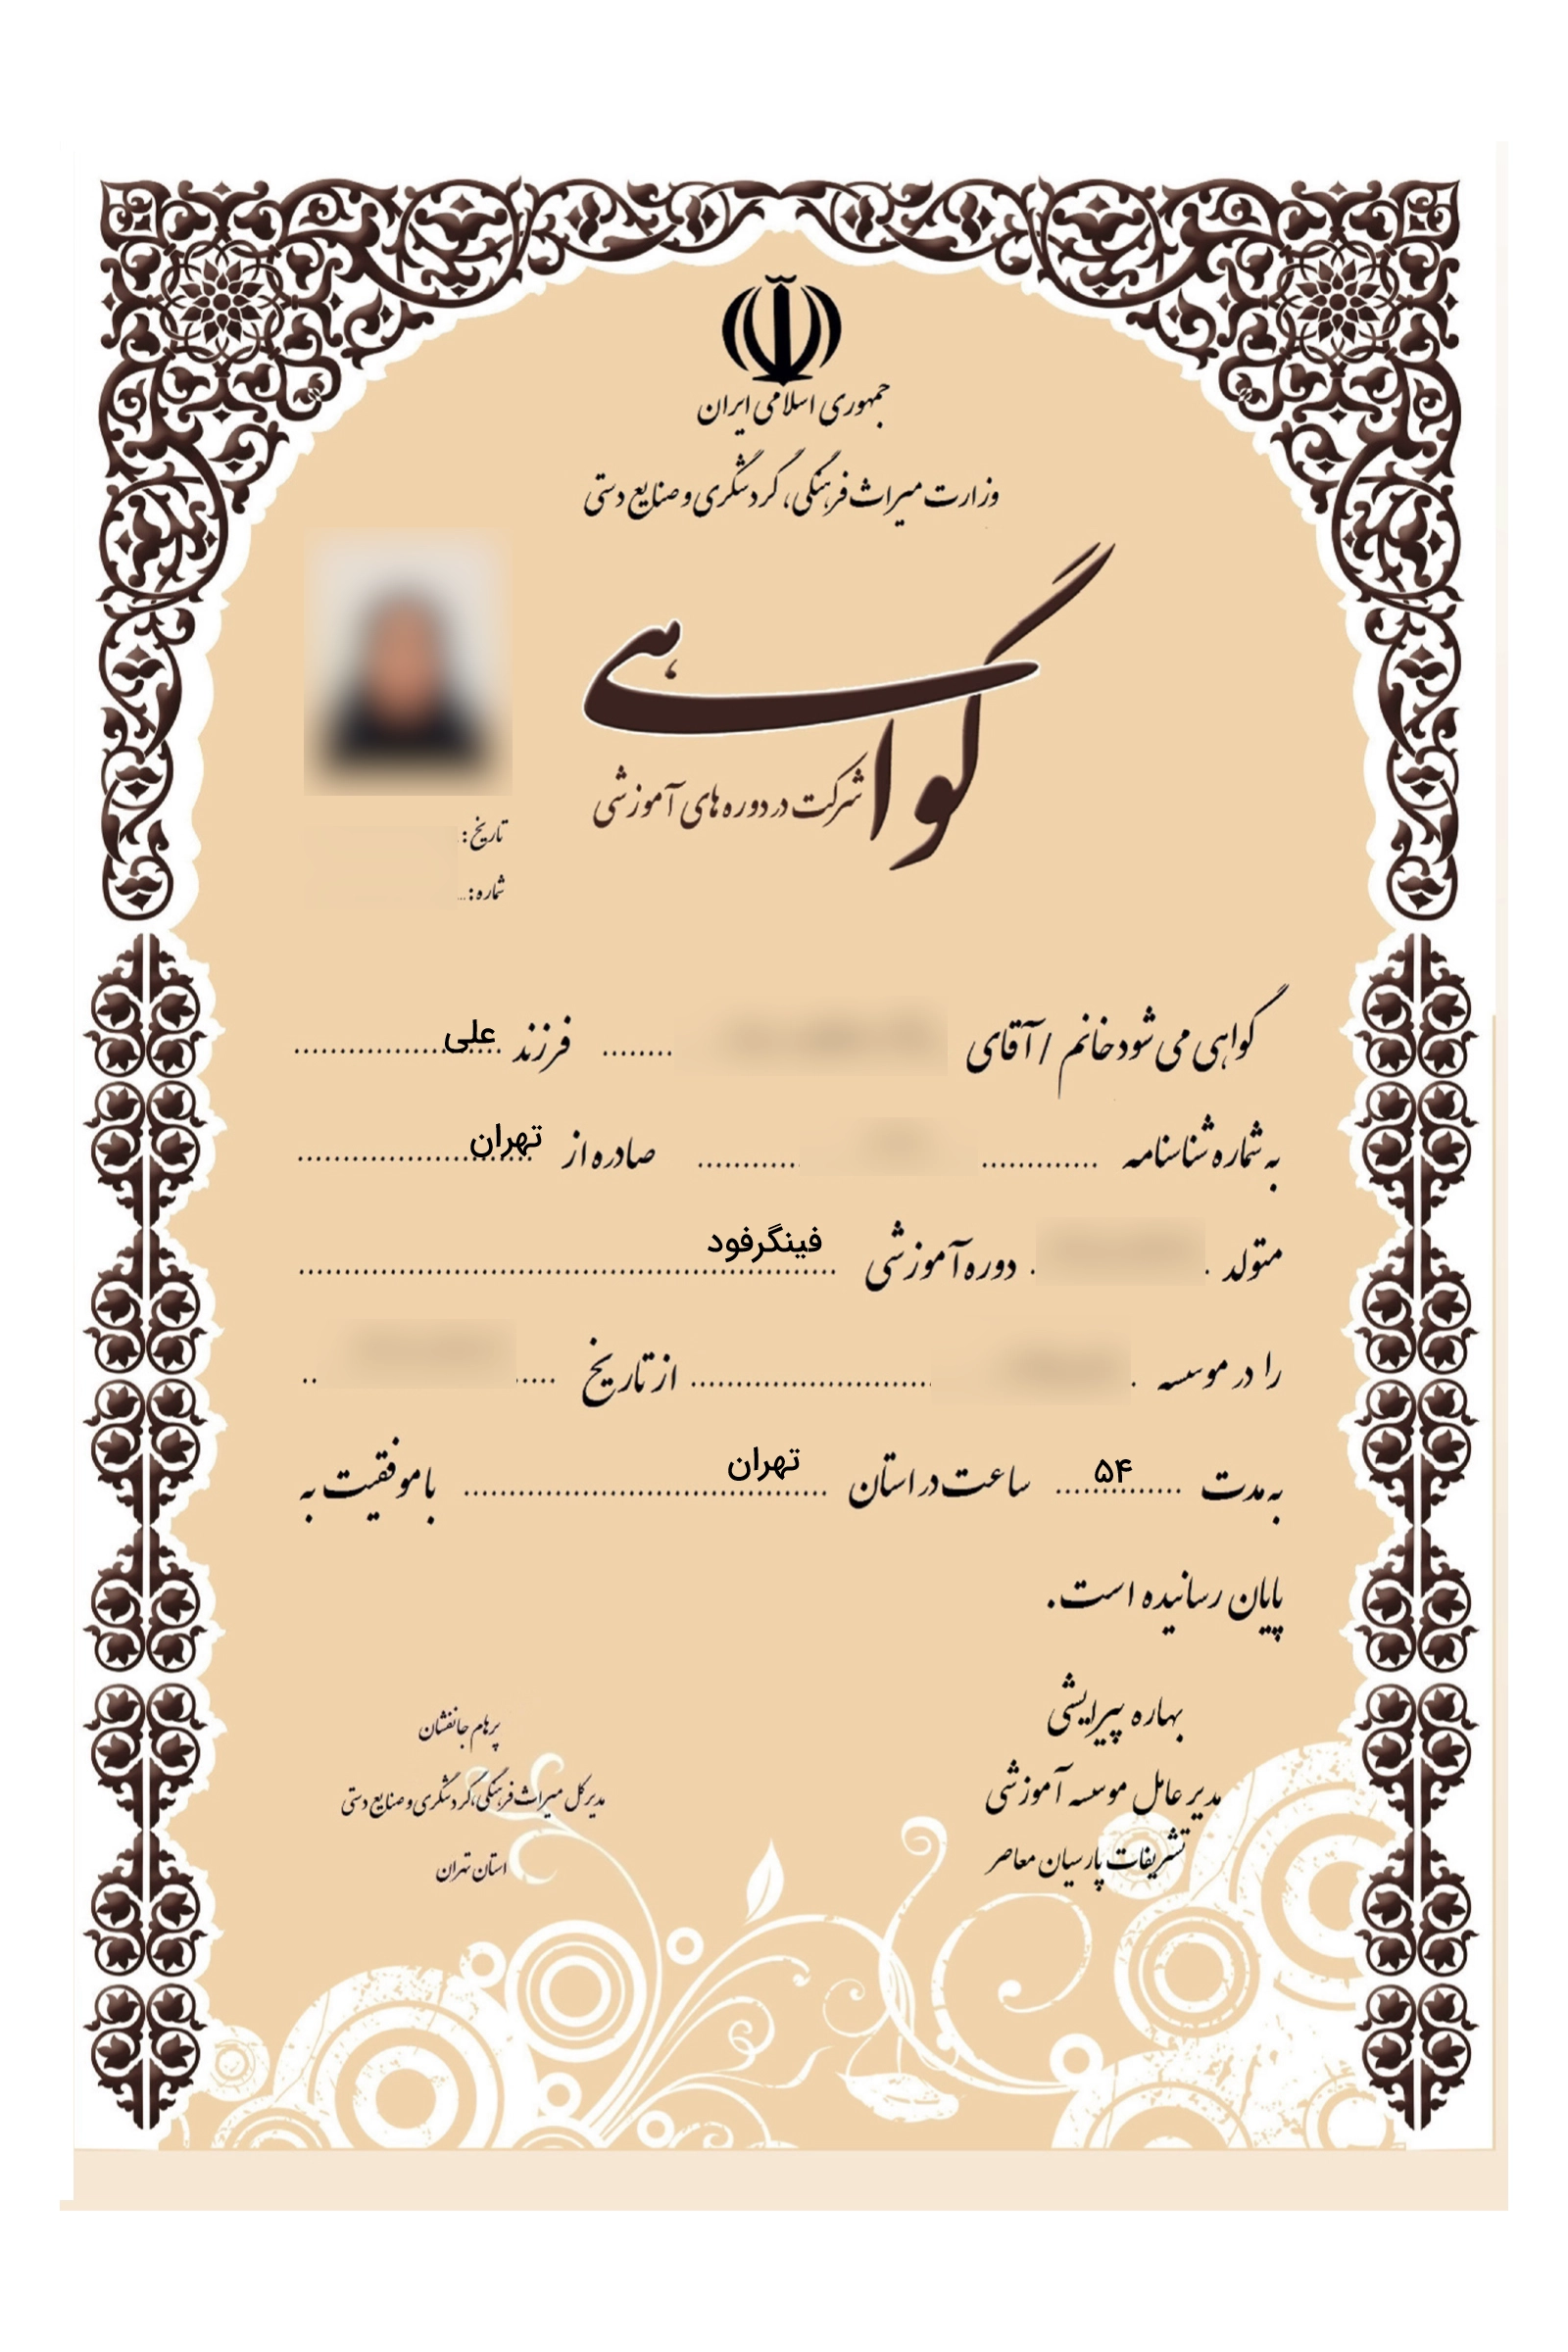 جمهوری اسلامی ایران
وزارت میراث فرهنگی، گردشگری و صنایع دستی
گواهی
شرکت در دوره های آموزشی
تاریخ:
شماره:
گواهی می شود خانم / آقای فرزند علی
به شماره شناسنامه صادره از تهران
متولد دوره آموزشی فینگرفود
را در موسسه از تاریخ
به مدت ۵۴ ساعت در استان تهران با موفقیت به
پایان رسانیده است.
بهاره پیرایشی
مدیر عامل موسسه آموزشی
تشریفات پارسیان معاصر
پرهام جانفشان
مدیرکل میراث فرهنگی، گردشگری و صنایع دستی
استان تهران